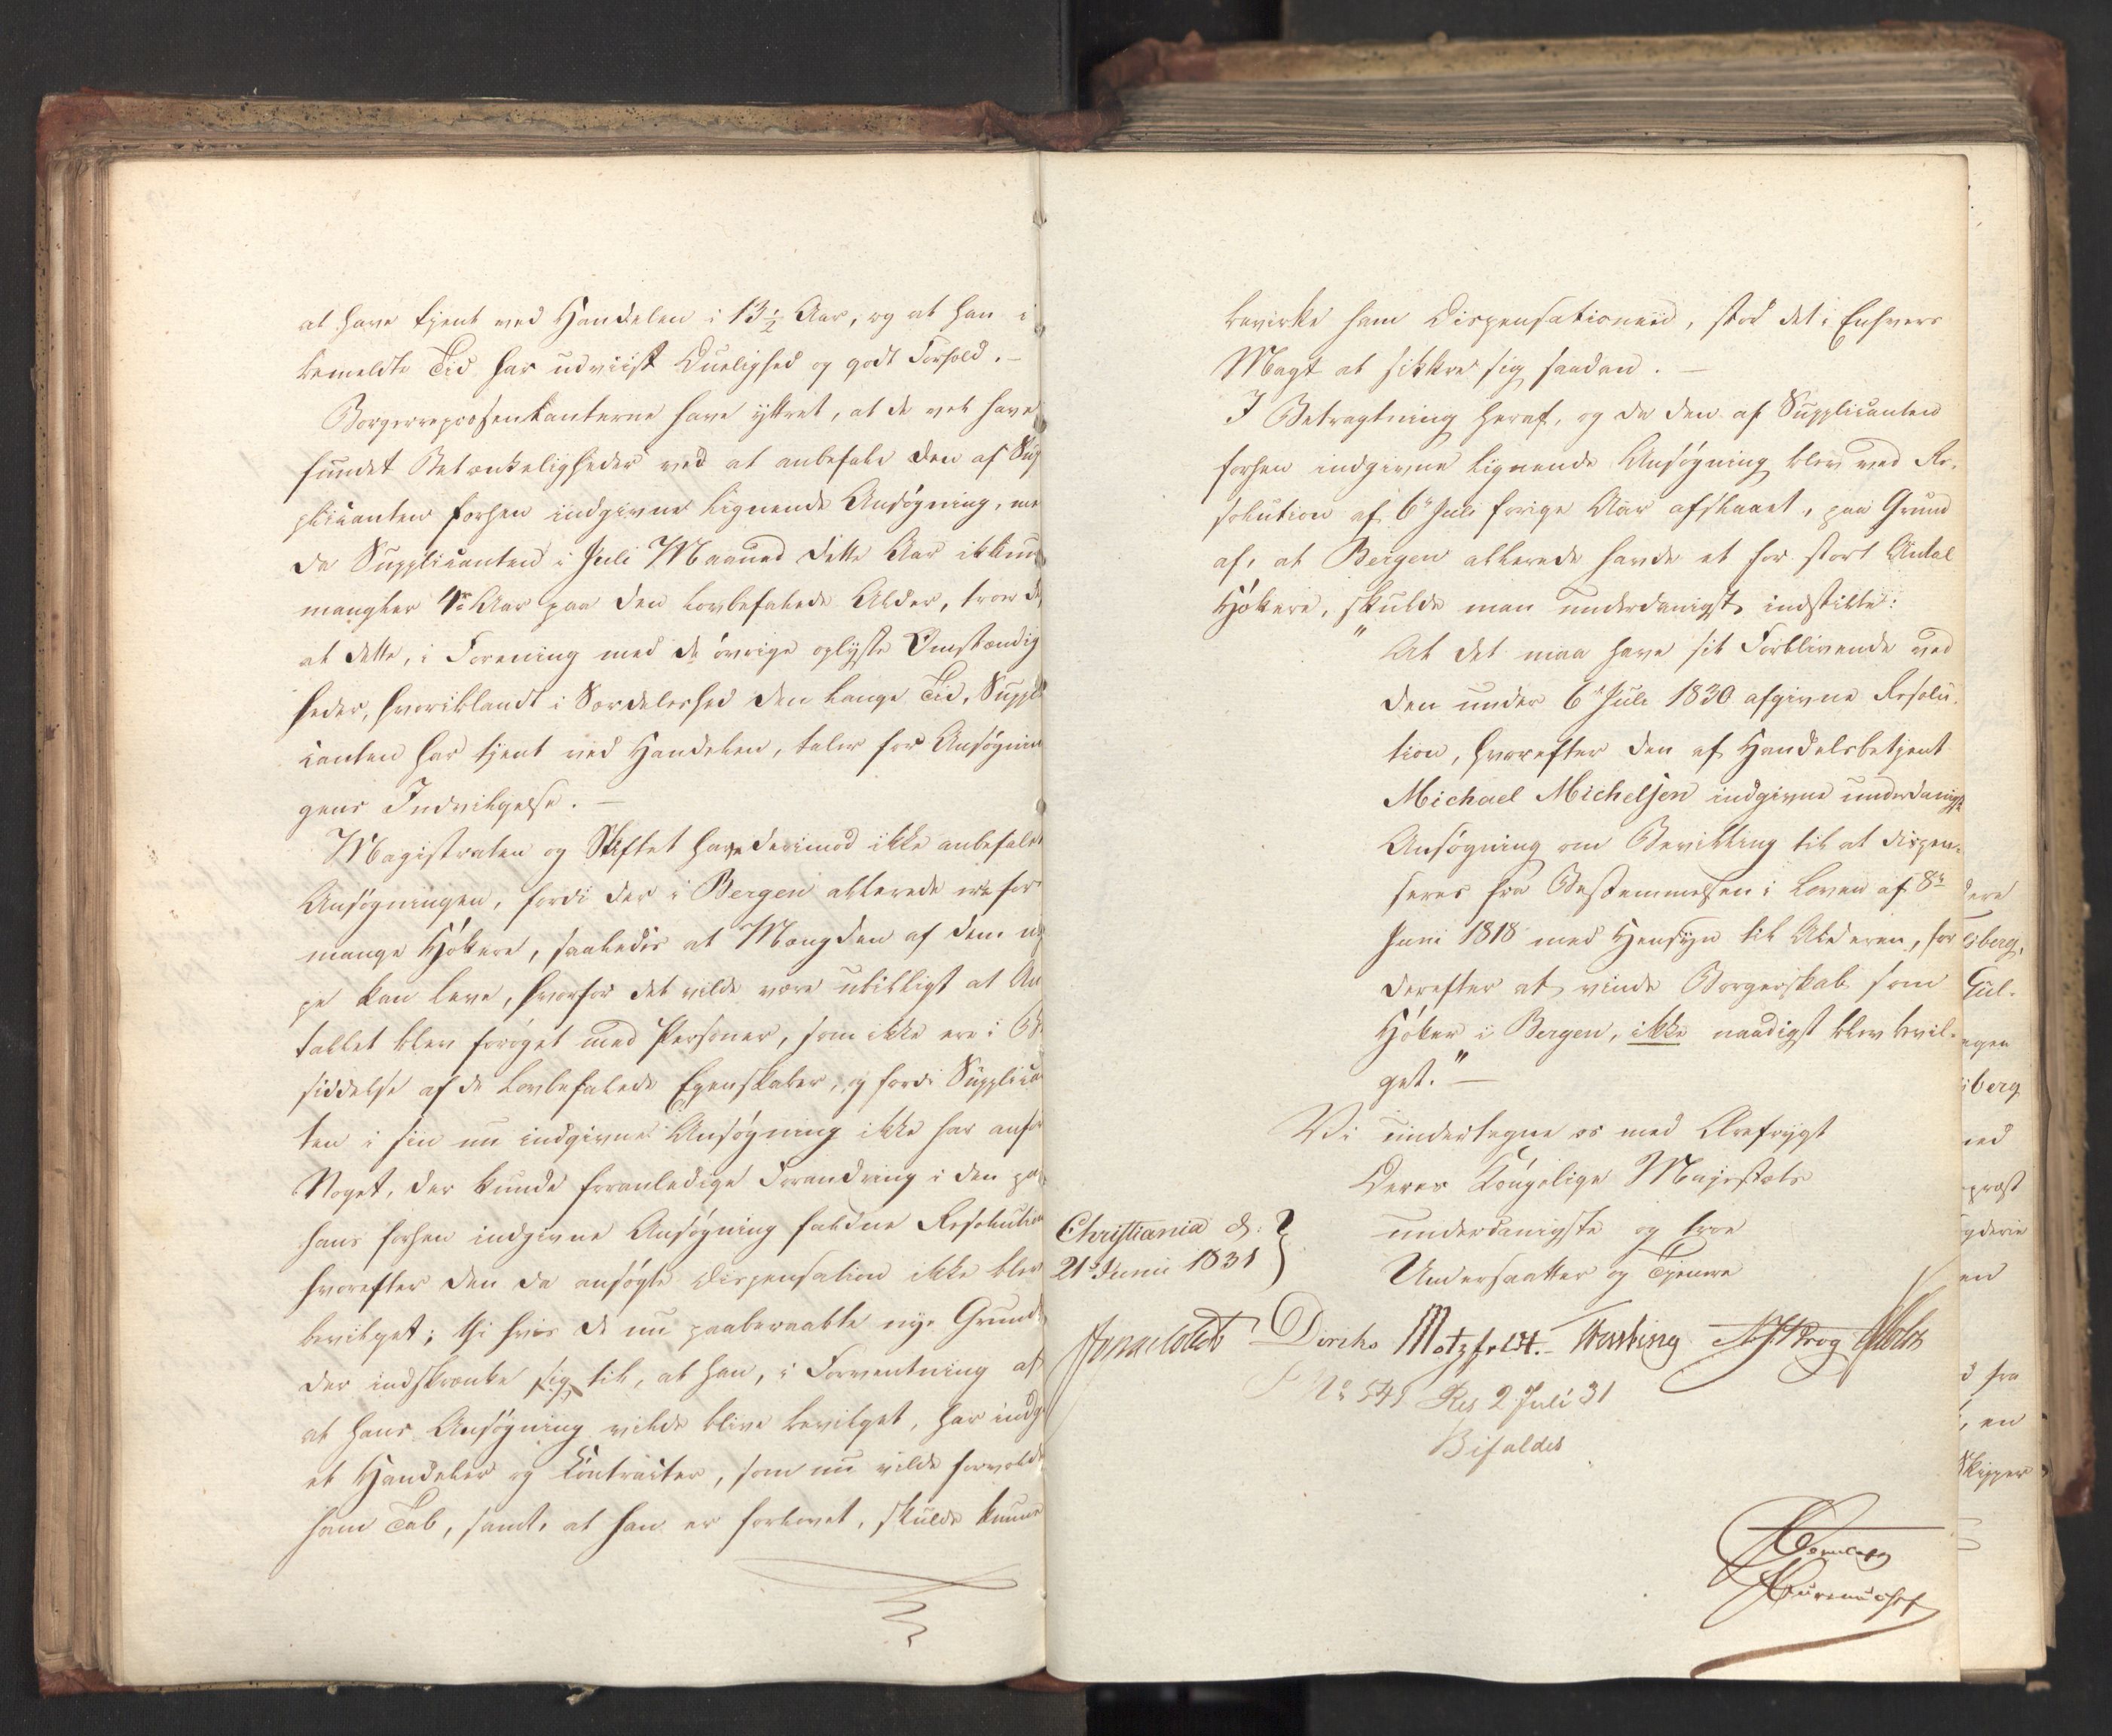 at have tjent ved Handelen i 13½ Aar, og at han i
bemeldte Tid har udviist Duelighed og godt Forhold. —
Borgerrepræsentanterne have yttret, at de vel have
fundet Betænkeligheder ved at anbefale den af Sup
plicanten forhen indgivne lignende Ansøgning, me
da Supplicanten i Juli Maaned dette Aar ikkun
mangler Aar paa den lovbefalede Alder, troer de
at dette, i Forening med de øvrige oplyste Omstændig
heder, hvoriblandt i Særdeleshed den lange Tid, Suppli
canten har tjent ved Handelen, taler for Ansøgnin
gens Indvilgelse. —
Magistraten og Stiftet have derimod ikke anbefalet
Ansøgningen, fordi der i Bergen allerede ere for
mange Høkere, saaledes at Mængden af dem ny
pe kan leve, hvorfor det vilde være ubilligt at An
tallet blev forøget med Personer, som ikke ere i Be
siddelse af de lovbefalede Egenskaber, og fordi Supplican
ten i sin nu indgivne Ansøgning ikke har anfø
Noget, der kunde foranledige Forandring i den paa
hans forhen indgivne Ansøgning faldne Resolution
hvorefter den da ansøgte Dispensation ikke blev
bevilget; thi hvis de nu paaberaabte nye Grunde
der indskrænke sig til, at han, i Forventning af
at hans Ansøgning vilde blive bevilget, har indg
et Handeler og Contracter, som nu vilde forvolde
ham Tab, samt, at han er forlovet, skulde kunne
bevirke ham Dispensationen, stod det i Enhvers
Magt at sikkre sig saadan. —
I Betragtning heraf, og da den af Supplicanten
forhen indgivne lignende Ansøgning blev ved Re-
solution af 6 Juli forige Aar afslaaet, paa Grund
af, at Bergen allerede havde et for stort Antal
Høkere, skulde man underdanigst indstille:
"At det maa have sit Forblivende ved
den under 6 Juli 1830 afgivne Resolu-
tion, hvorefter den af Handelsbetjent
Michael Michelsen indgivne underdanigst
Ansøgning om Bevilling til at dispen-
seres fra Bestemmelsen i Loven af 8
Juni 1818 med Hensyn til Alderen, for
derefter at vinde Borgerskab som
Høker i Bergen, ikke naadigst blev bevil-
get." —
Vi undertegne os med Ærefrygt
Deres Kongelige Majestæts
Christiania d:
underdanigste og troe
21 Junii 1831
Undersaatter og Tjenere
Diriks Motzfeldt. Krog Holst
No 541 Res 2 Juli 31
Bifaldes
dere
sberg,
Gul-
gen
sberg
ned
præst
gderie
en
d fra
, en
Skipper